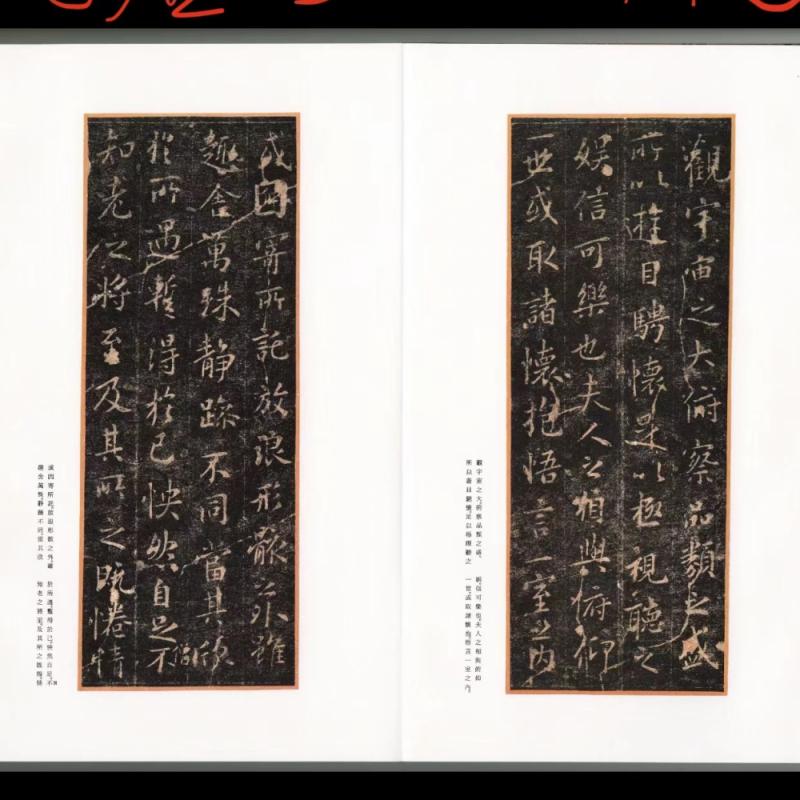 觀宇宙之大俯察品類之盛
所以遊目騁懷足以極視聽之
娛信可樂也夫人之相與俯仰
一世或取諸懷抱悟言一室之內
觀宇宙之大，俯察品類之盛，
所以遊目騁懷，足以極視聽之
娛，信可樂也。夫人之相與俯仰
一世，或取諸懷抱，悟言一室之內，
或因寄所託放浪形骸之外雖
趣舍萬殊靜躁不同當其欣
僧
於所遇暫得於己怏然自足不
知老之將至及其所之既惓情
或因寄所託，放浪形骸之外。雖
趣舍萬殊，靜躁不同，當其欣
於所遇，暫得於己，怏然自足，不
知老之將至。及其所之既惓，情